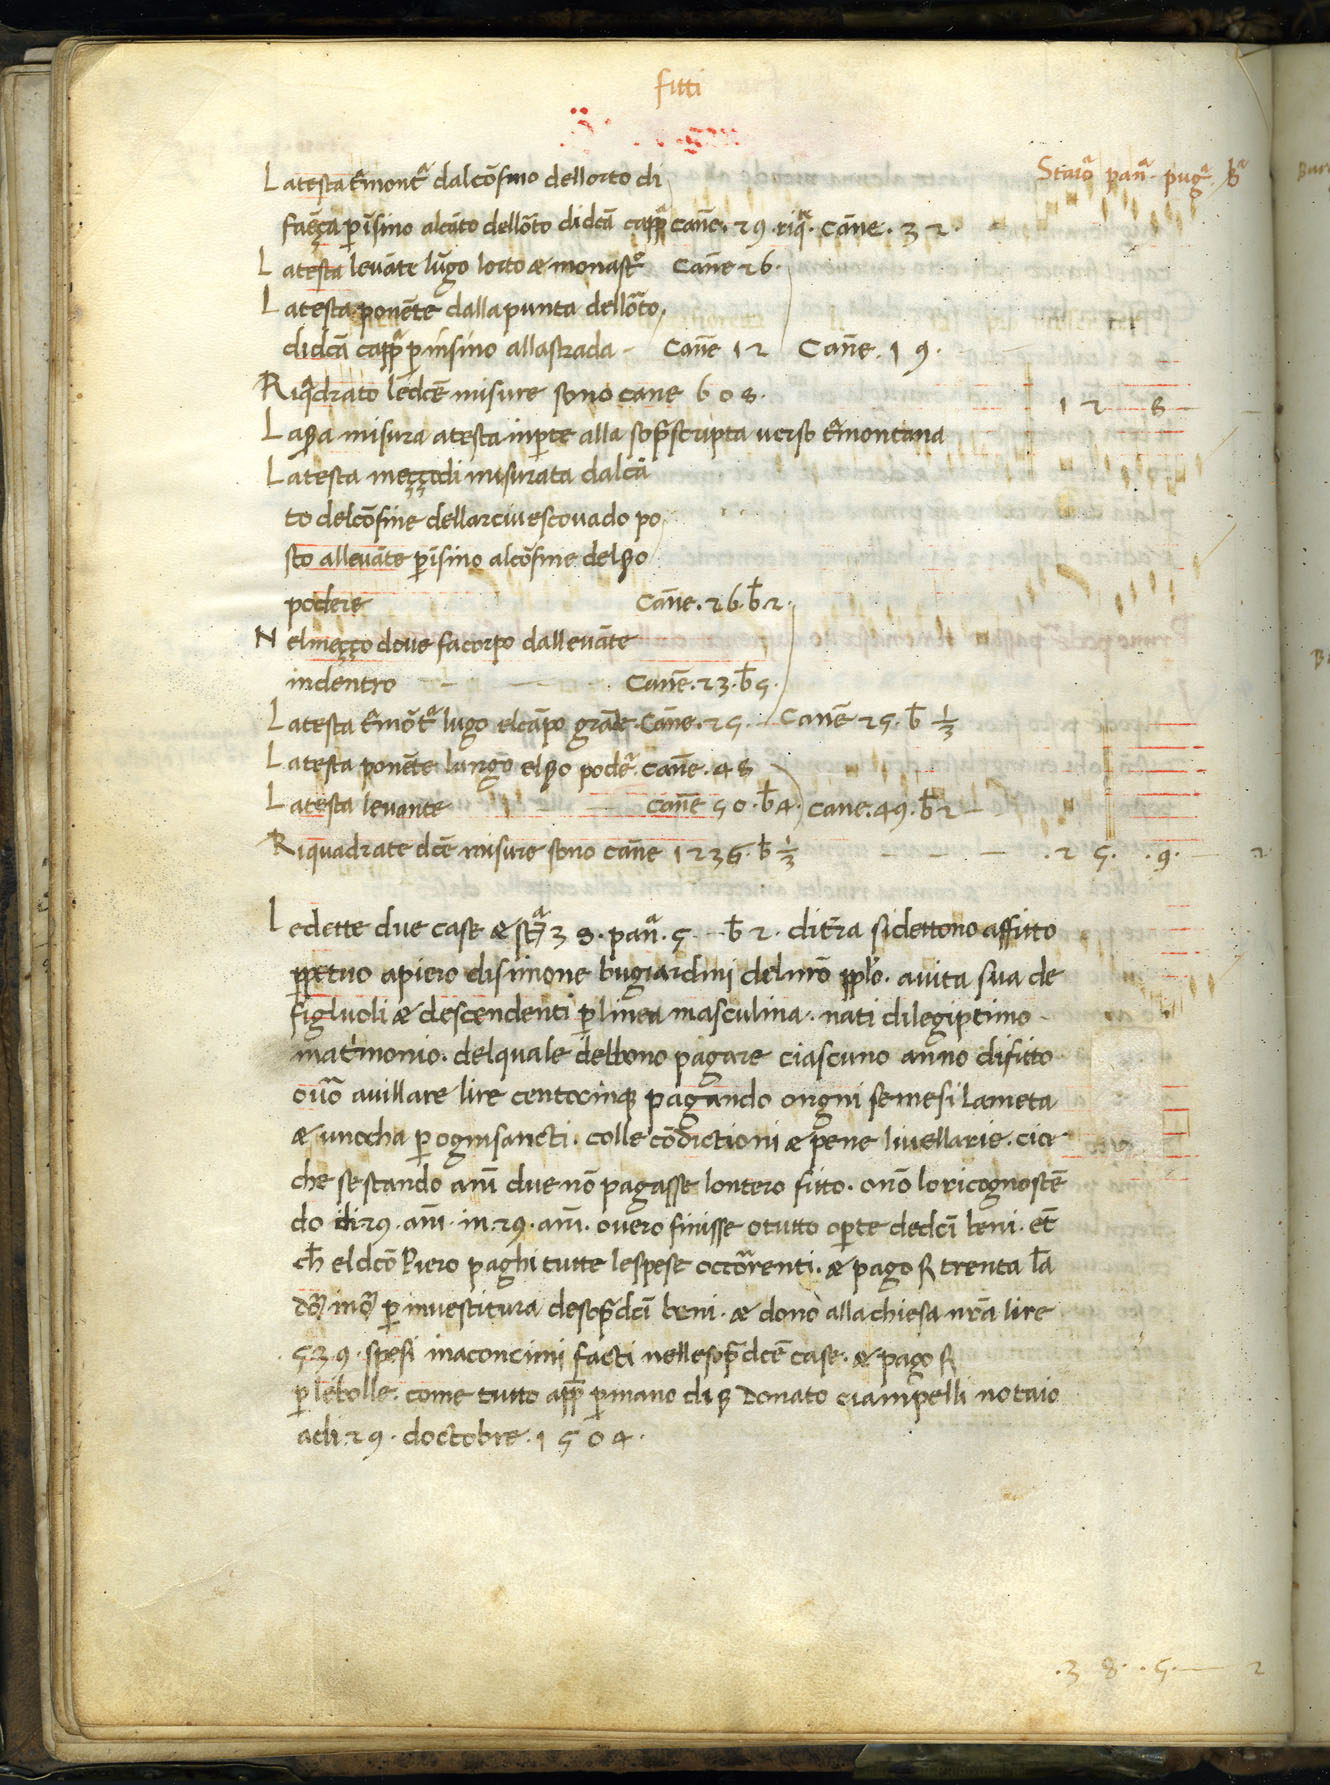 fitti
Starora pana pugra Ba
Latesta tramontra dalcōfino dellorto di
faēça p ĩsino alcāto dellōto didcā cappa canē. 29. riqr. cāne. 32.
Latesta levāte lūgo lorto æ monastro Canē 26.
Latesta ponēte dalla punta dellōto
didcā cappa p insino allastrada - Canē 12 Canē. 19.
Riqdrato ledcē misure sono cane 608. 12 8
Laprima misura atesta inpte alla soprascripta verso tramontana
Latesta meççodi misurata dalcā
to delcōfine dellarcivescovado po
sto allevāte p ĩsino alcōfine del
podere Canē. 26. b̄ 2.
Nelmeççо dove facorpo dallevāte
indentro Canē. 23. b̄ 5.
Latesta tramōtra lūgo elcāpo grāde. Cāne. 25. Canē 25. b̄ 1/3
Latesta ponēte lungo el podere. canē. 48
Latesta levante Canē 50. b̄ 4. Cane. 49. b̄ 2
Riquadrate dcē misure sono cāne 1236. b̄ 1/3 .25. .9. 2
Ledette due case æ sta 38. pana. 5 b̄ 2. diterra sidettono affitto
ppetuo apiero disimone bugiardini delnrō pplo. avita sua de
figluoli æ descendenti p linea masculina. nati dilegiptimo
matrimonio. delquale debbono pagare ciascuno anno difitto
overo avillare lire centocinq pagando ongni semesi lameta
æ unocha p ognisancti. colle cōdictioni æ pene livellarie. cioe
che se stando anni due nō pagasse lontero fitto. onō loricognoscē
do di 29. anni in. 29. anni. overo finisse otutto opte dedcī beni. et
ch̄ eldcō Piero paghi tutte lespese occorrenti. æ pago trenta
p investitura desopradcī beni. æ dono alla chiesa nrā lire
539. spesi inaconcimi facti nellesopradcē case. æ pago
p lebolle. come tutto app pmano di Donato ciampelli notaio
adi. 29. doctobre. 1504.
.38. .5. 2